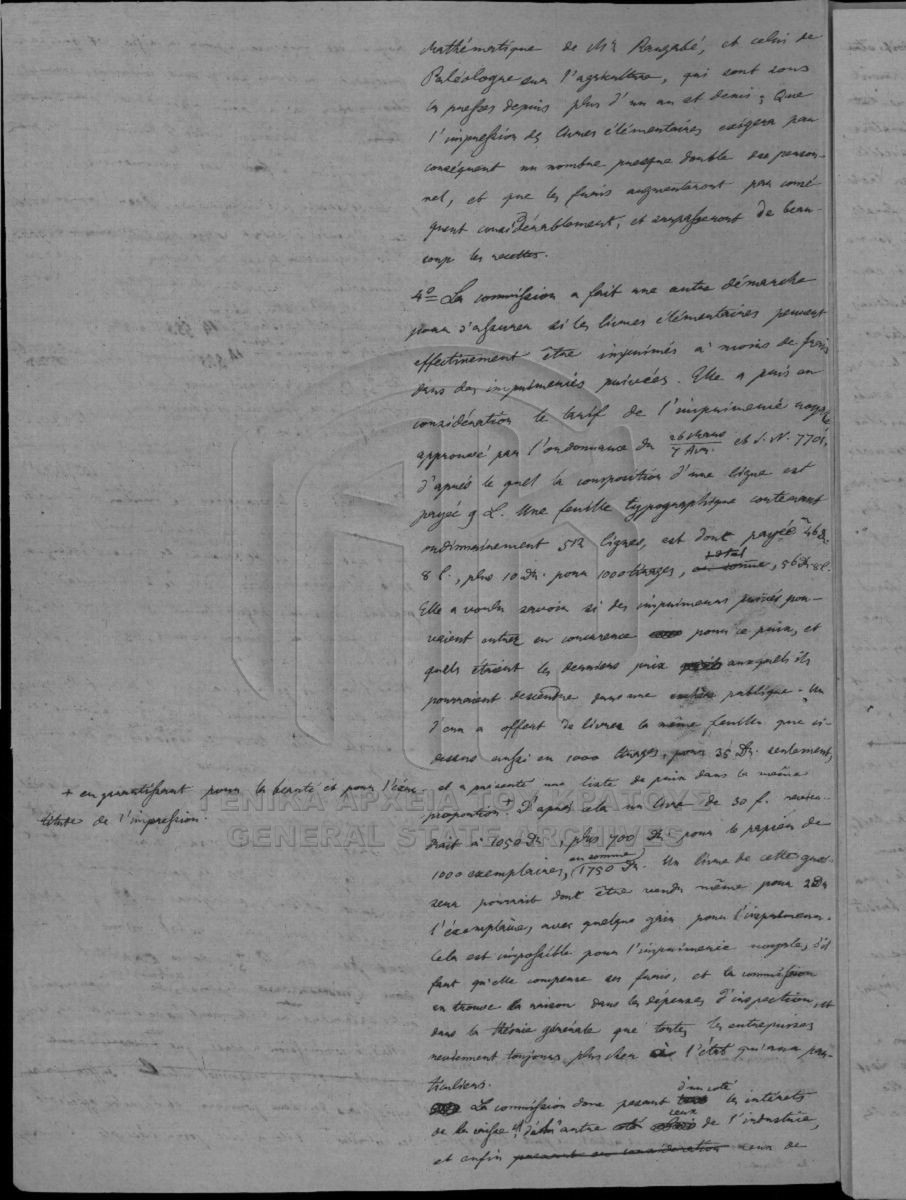 Mathématique de Mr Rangabé, et celui de
Paléologue sur l'agriculture, qui sont sous
les presses depuis plus d'un an et demis; Que
l'impression des livres élémentaires exigera par
conséquent un nombre presque double de person-
nel, et que les frais augmenteront par consé
quent considérablement, et surpasseront de beau-
coup les recettes.
4º La commission a fait une autre démarche
pour s'assurer si les livres élémentaires peuvent
effectivement être imprimés à moins de frais
dans des imprimeries privées. Elle a pris en
considération le tarif de l'imprimerie royale
approuvé par l'ordonnance du 26 Mars / 7 Avr. et s. N. 7701,
d'après le quel la composition d'une ligne est
payée 9 L. Une feuille typographique contenant
ordinairement 512 lignes, est dont payée 46 Dr.
8 l., plus 10 Dr. pour 1000 tirages, total, 56 Dr 8 l.
Elle a voulu savoir si des imprimeurs privés pou-
vaient entrer en concurence pour ce prix, et
quels étaient les derniers prix auxquels ils
pourraient descendre dans une publique. Un
d'eux a offert de livrer la même feuille que ci-
dessus aussi en 1000 tirages, pour 35 Dr. seulement,
et a présenté une liste de prix dans la même
+ en garantissant pour la beauté et pour l'éxac-
titude de l'impression.
proportion.+ D'après cela un livre de 30 f. revien-
drait à 1050 Dr., plus 700 Dr. pour le papier de
1000 exemplaires, en somme 1750 Dr. Un livre de cette gros-
seur pourrait dont être vendu même pour 2 Dr
l'exemplaire, avec quelque gain pour l'imprimeur.
Cela est impossible pour l'imprimerie royale, s'il
faut qu'elle compense ses frais, et la commission
en trouve la raison dans les dépenses d'inspection, et
dans la théorie générale que toutes les entreprises
reviennent toujours plus cher à l'état qu'aux par-
ticuliers.
La commission donc pesant d'un coté les intérêts
de la caisse et d'un autre ceux de l'industrie,
et enfin ceux de
ΓΕΝΙΚΑ ΑΡΧΕΙΑ ΤΟΥ ΚΡΑΤΟΥΣ
GENERAL STATE ARCHIVES